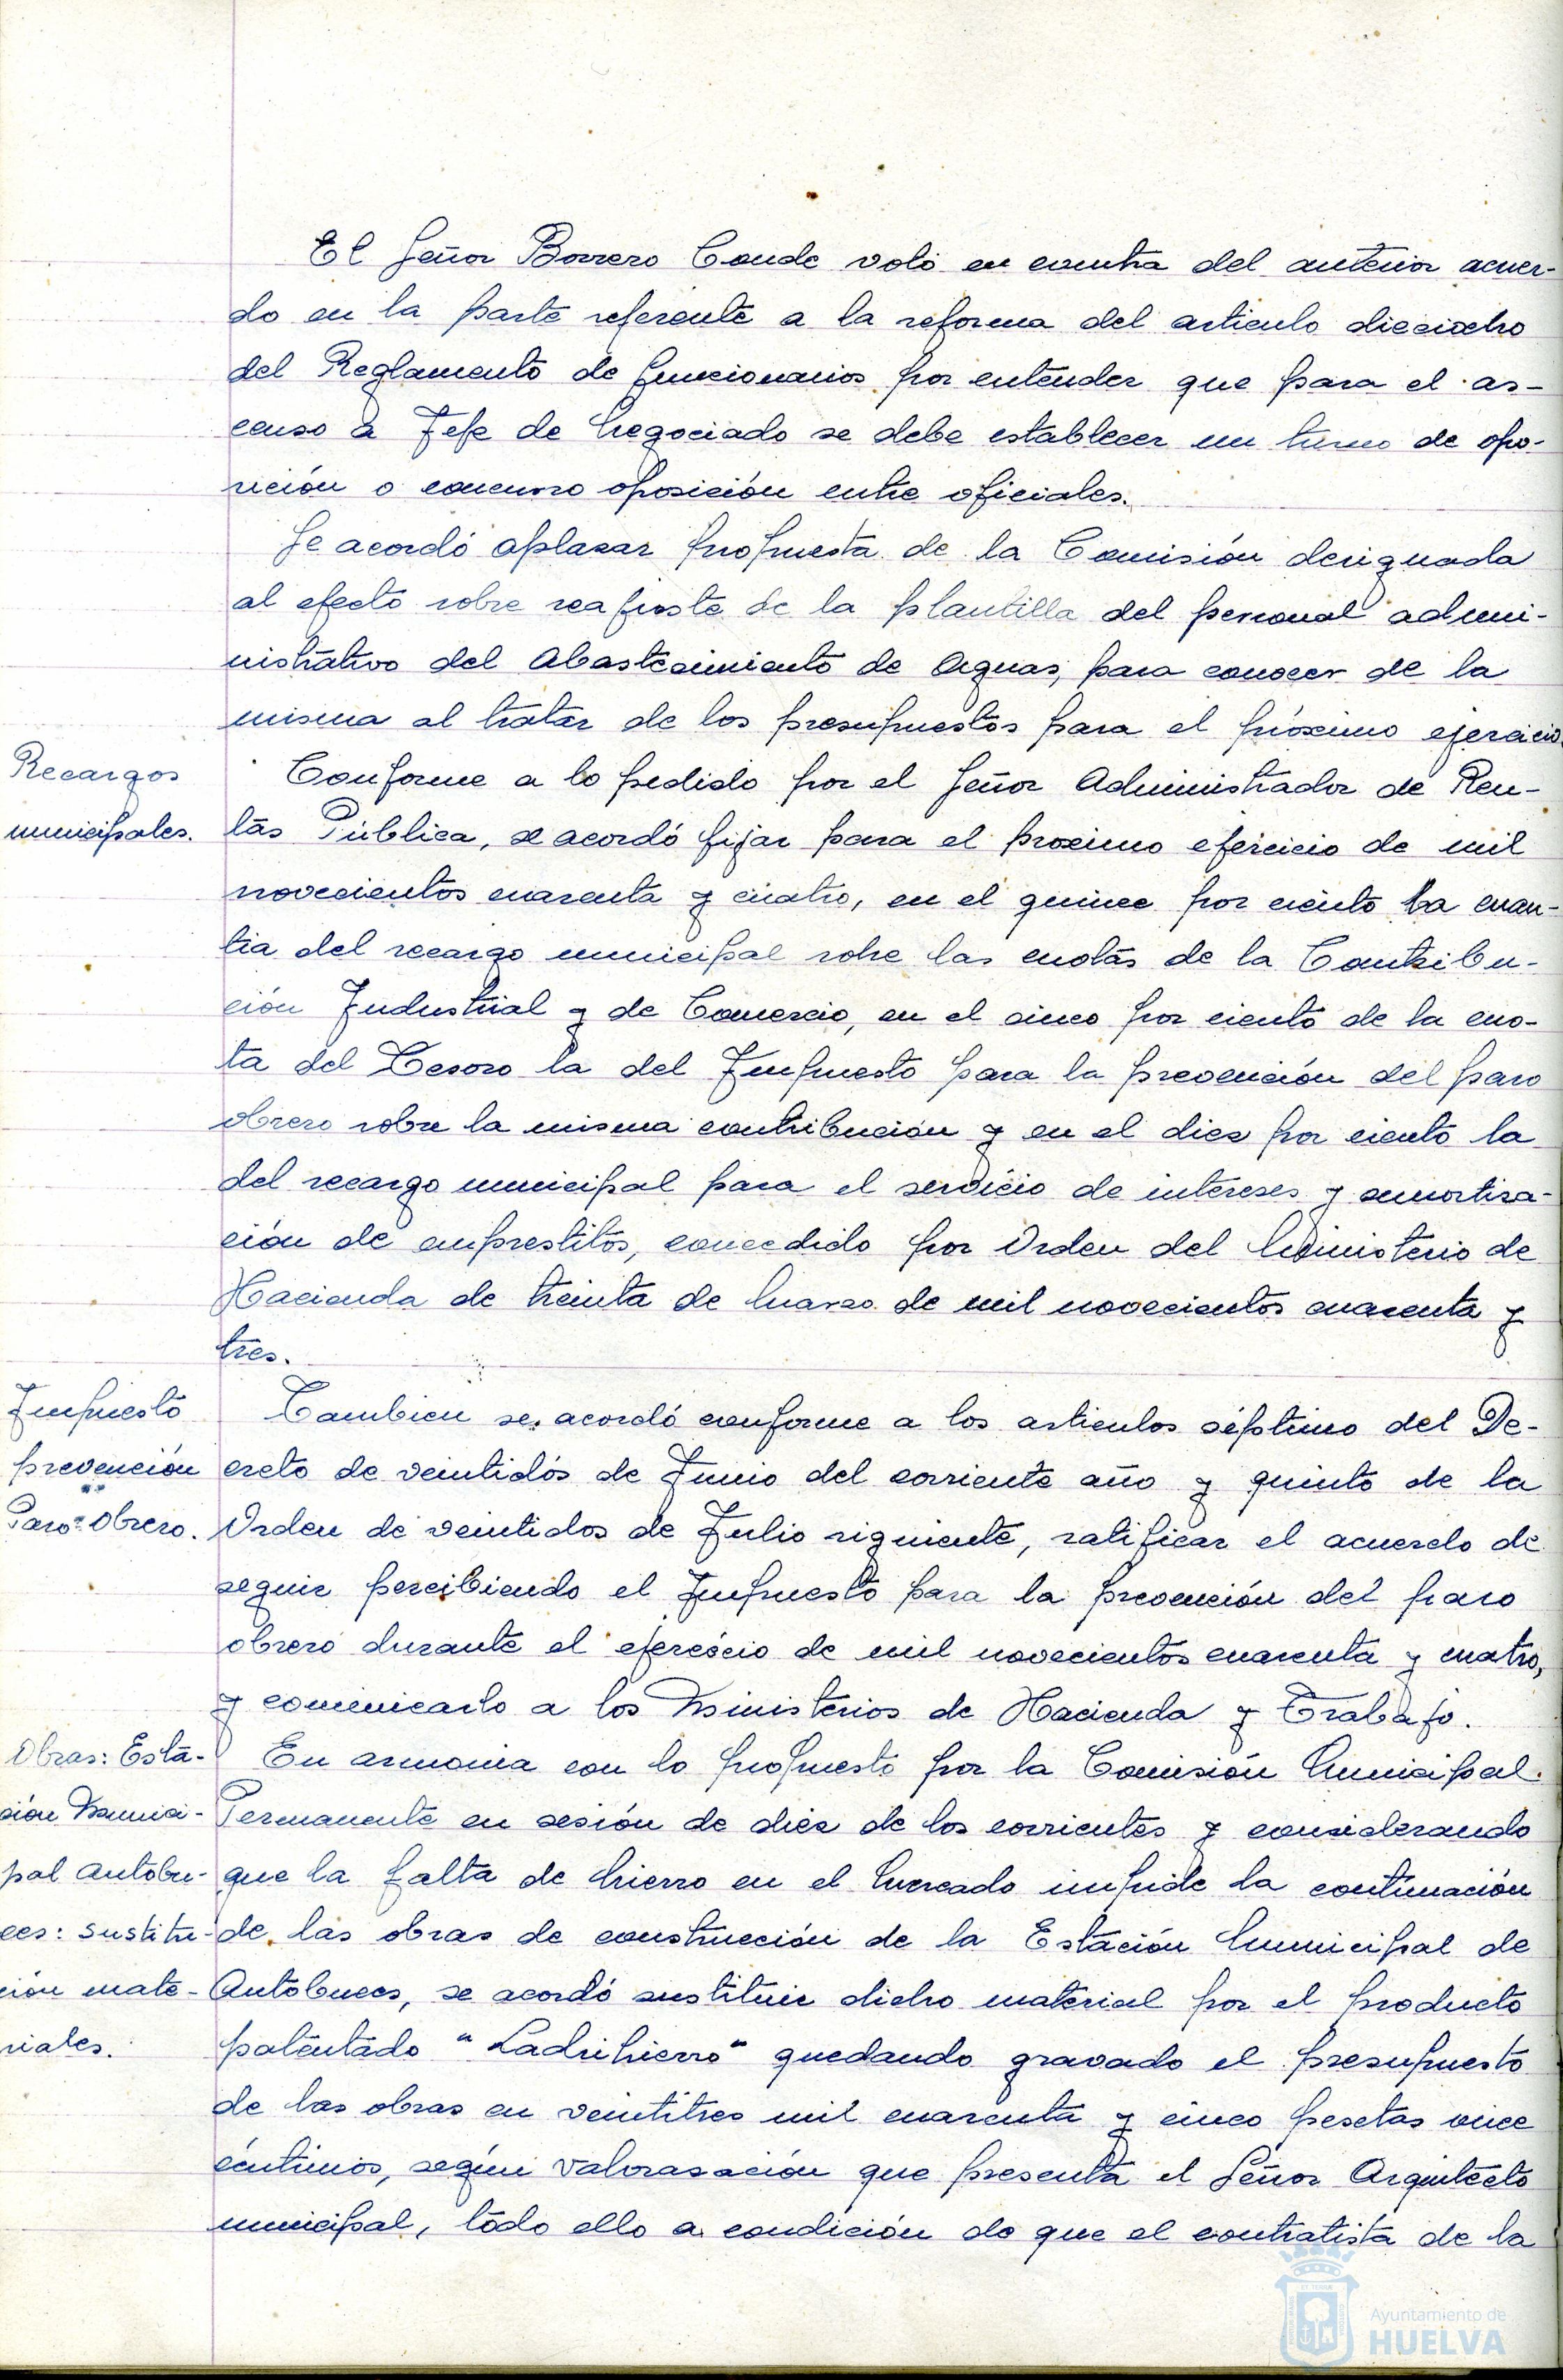 El Señor Borrero Conde votó en contra del anterior acuer-
do en la parte referente a la reforma del articulo dieciocho
del Reglamento de funcionarios por entender que para el as-
censo a Jefe de Negociado se debe establecer un turno de opo-
sición o concurso oposición entre oficiales.
Se acordó aplazar propuesta de la Comisión designada
al efecto sobre reajuste de la plantilla del personal admi-
nistrativo del Abastecimiento de Aguas, para conocer de la
misma al tratar de los presupuestos para el próximo ejercicio.
Recargos
municipales.
Conforme a lo pedido por el Señor Administrador de Ren-
tas Pública, se acordó fijar para el proximo ejercicio de mil
novecientos cuarenta y cuatro, en el quince por ciento la cuan-
tia del recargo municipal sobre las cuotas de la Contribu-
ción Industrial y de Comercio, en el cinco por ciento de la cuo-
ta del Tesoro la del Impuesto para la prevención del paro
obrero sobre la misma contribución y en el diez por ciento la
del recargo municipal para el servicio de intereses y amortiza-
ción de emprestitos, concedido por Orden del Ministerio de
Hacienda de treinta de Marzo de mil novecientos cuarenta y
tres.
Impuesto
prevención
Paro Obrero.
Tambien se acordó conforme a los articulos séptimo del De-
creto de veintidós de Junio del corriente año y quinto de la
Orden de veintidos de Julio siguiente, ratificar el acuerdo de
seguir percibiendo el Impuesto para la prevención del paro
obrero durante el ejercicio de mil novecientos cuarenta y cuatro,
y comunicarlo a los Ministerios de Hacienda y Trabajo.
Obras: Esta-
ción Munici-
pal Autobu-
ces: sustitu-
ción mate-
riales.
En armonia con lo propuesto por la Comisión Municipal
Permanente en sesión de diez de los corrientes y considerando
que la falta de hierro en el Mercado impide la continuación
de las obras de construcción de la Estación Municipal de
Autobuces, se acordó sustituir dicho material por el producto
patentado "Ladrihierro" quedando gravado el presupuesto
de las obras en veintitres mil cuarenta y cinco pesetas once
céntimos, según valorasación que presenta el Señor Arquitecto
municipal, todo ello a condición de que el contratista de la
Ayuntamiento de
HUELVA